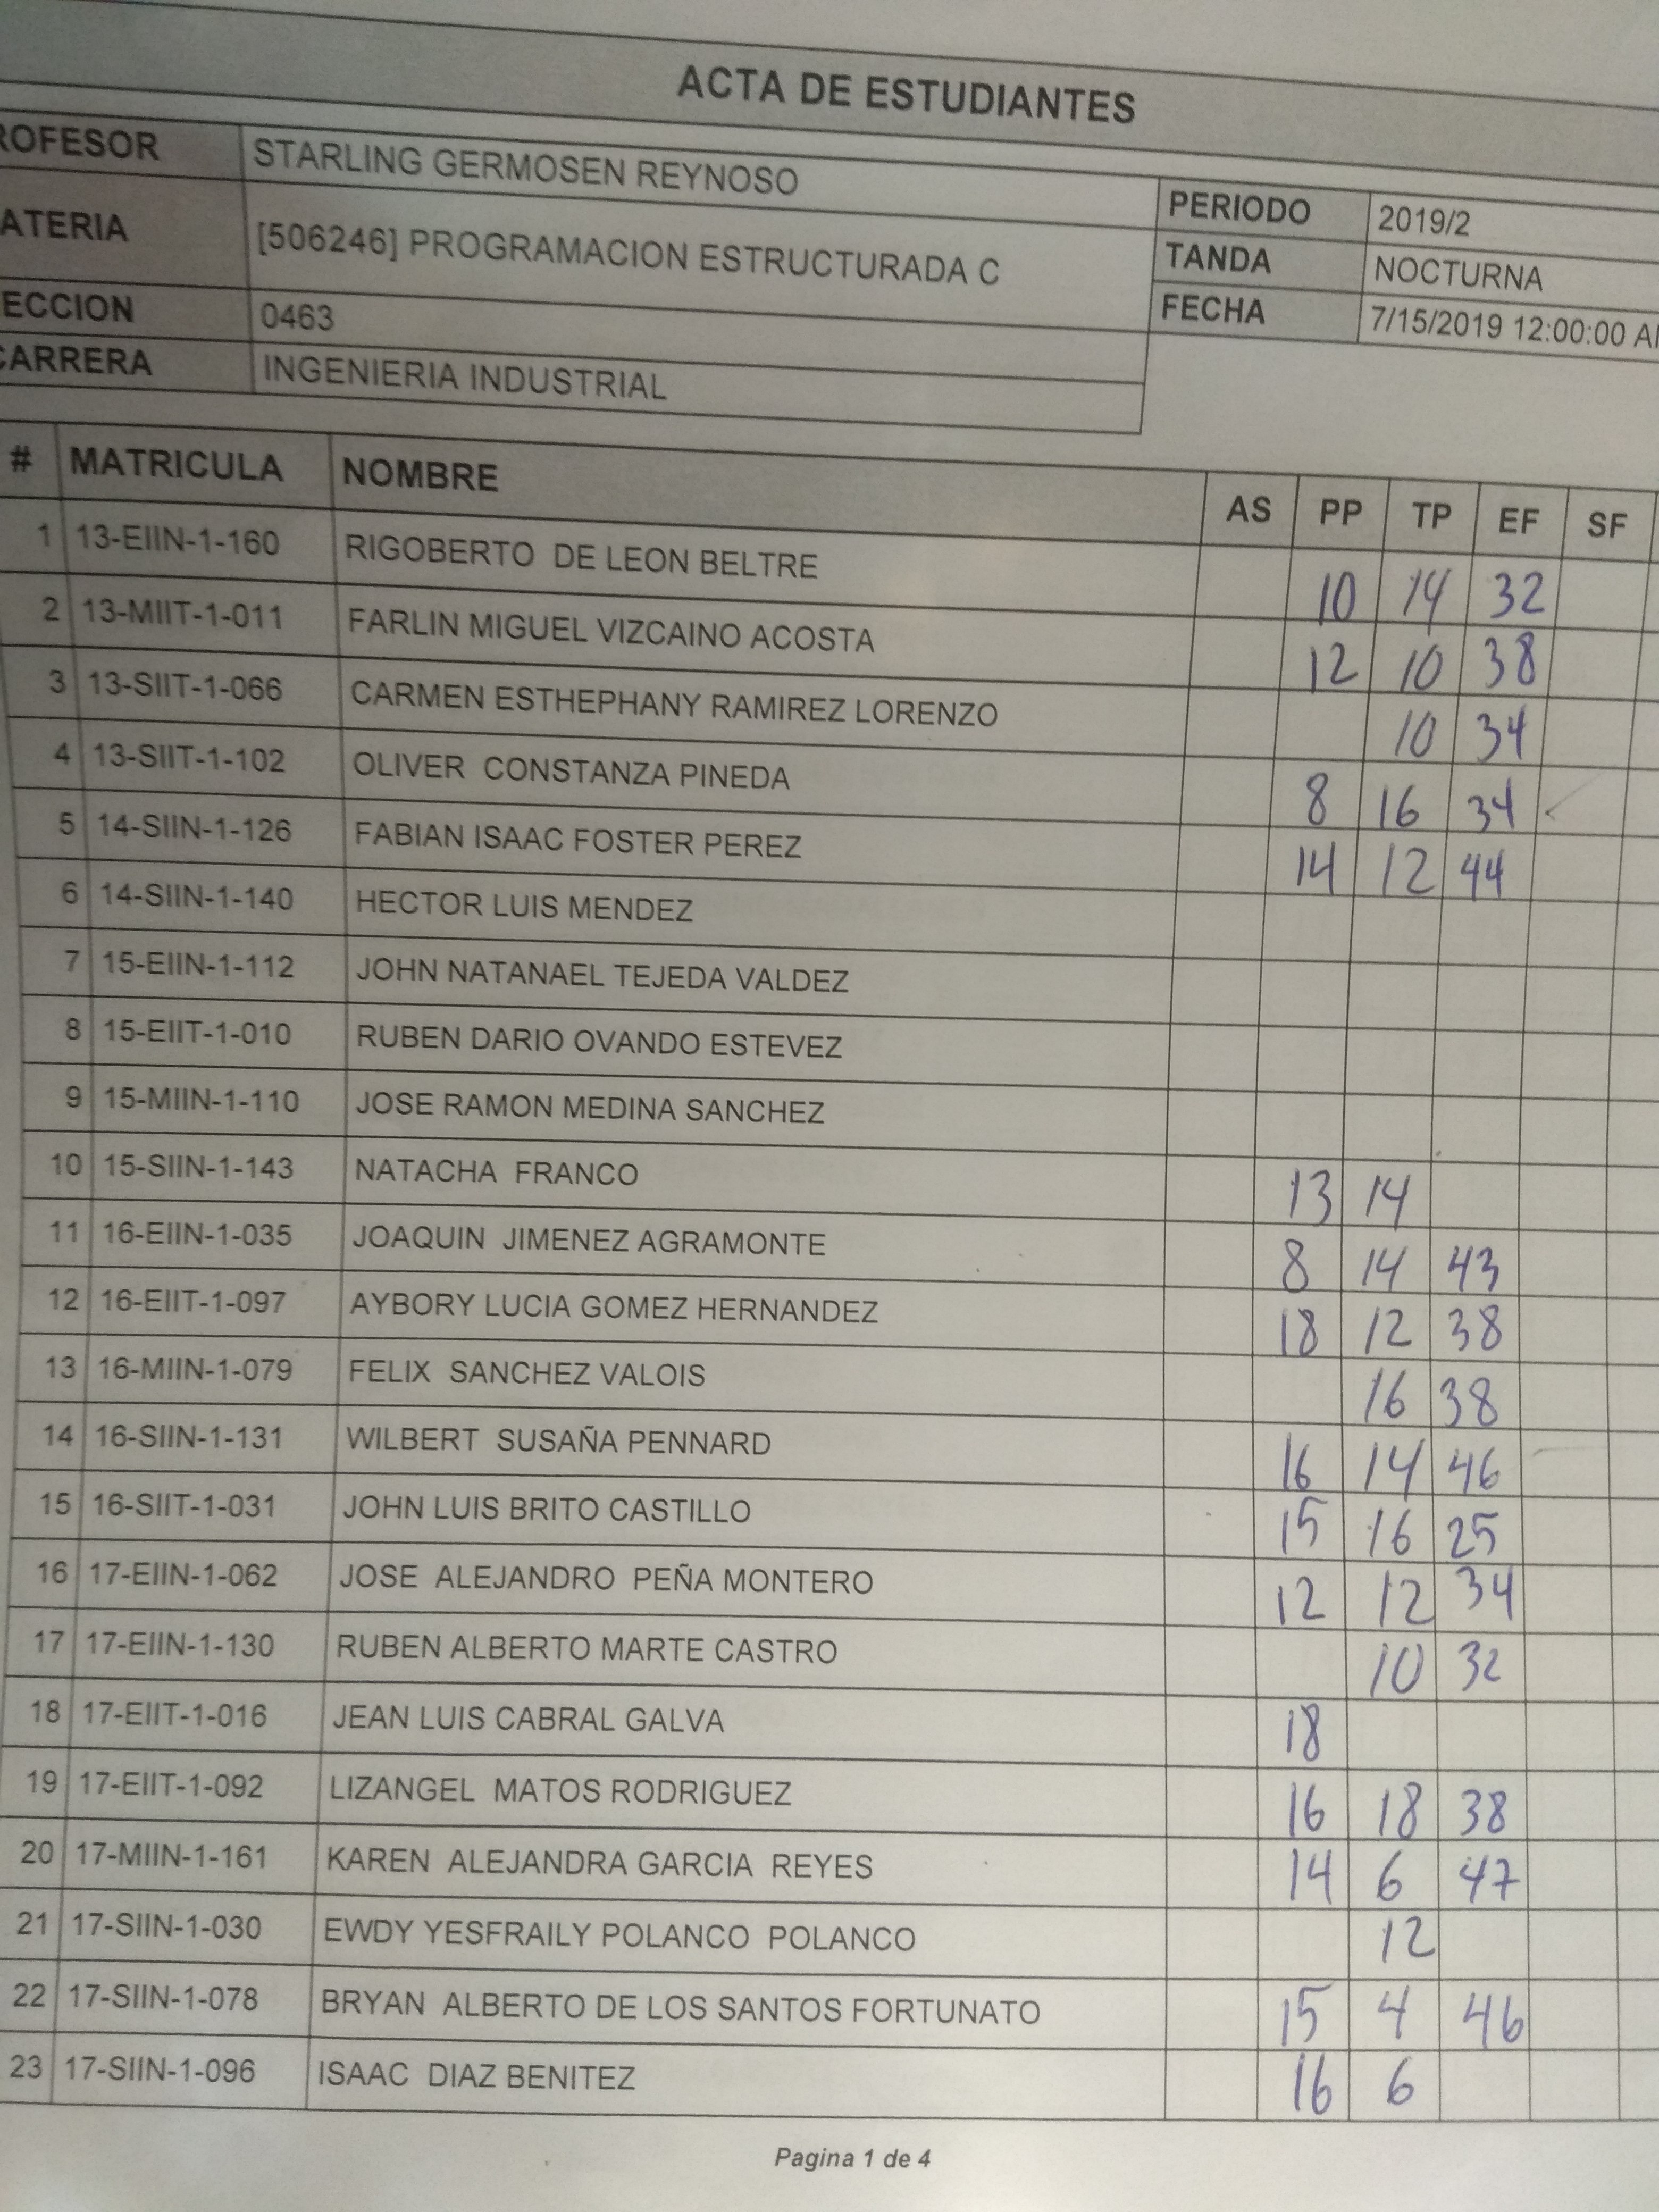 ACTA DE ESTUDIANTES
ROFESOR STARLING GERMOSEN REYNOSO
ATERIA [506246] PROGRAMACION ESTRUCTURADA C
ECCION 0463
CARRERA INGENIERIA INDUSTRIAL
PERIODO 2019/2
TANDA NOCTURNA
FECHA 7/15/2019 12:00:00 A
# MATRICULA NOMBRE AS PP TP EF SF
1 13-EIIN-1-160 RIGOBERTO DE LEON BELTRE 10 14 32
2 13-MIIT-1-011 FARLIN MIGUEL VIZCAINO ACOSTA 12 10 38
3 13-SIIT-1-066 CARMEN ESTHEPHANY RAMIREZ LORENZO 10 34
4 13-SIIT-1-102 OLIVER CONSTANZA PINEDA 8 16 34
5 14-SIIN-1-126 FABIAN ISAAC FOSTER PEREZ 14 12 44
6 14-SIIN-1-140 HECTOR LUIS MENDEZ
7 15-EIIN-1-112 JOHN NATANAEL TEJEDA VALDEZ
8 15-EIIT-1-010 RUBEN DARIO OVANDO ESTEVEZ
9 15-MIIN-1-110 JOSE RAMON MEDINA SANCHEZ
10 15-SIIN-1-143 NATACHA FRANCO 13 14
11 16-EIIN-1-035 JOAQUIN JIMENEZ AGRAMONTE 8 14 43
12 16-EIIT-1-097 AYBORY LUCIA GOMEZ HERNANDEZ 18 12 38
13 16-MIIN-1-079 FELIX SANCHEZ VALOIS 16 38
14 16-SIIN-1-131 WILBERT SUSAÑA PENNARD 16 14 46
15 16-SIIT-1-031 JOHN LUIS BRITO CASTILLO 15 16 25
16 17-EIIN-1-062 JOSE ALEJANDRO PEÑA MONTERO 12 12 34
17 17-EIIN-1-130 RUBEN ALBERTO MARTE CASTRO 10 32
18 17-EIIT-1-016 JEAN LUIS CABRAL GALVA 18
19 17-EIIT-1-092 LIZANGEL MATOS RODRIGUEZ 16 18 38
20 17-MIIN-1-161 KAREN ALEJANDRA GARCIA REYES 14 6 47
21 17-SIIN-1-030 EWDY YESFRAILY POLANCO POLANCO 12
22 17-SIIN-1-078 BRYAN ALBERTO DE LOS SANTOS FORTUNATO 15 4 46
23 17-SIIN-1-096 ISAAC DIAZ BENITEZ 16 6
Pagina 1 de 4